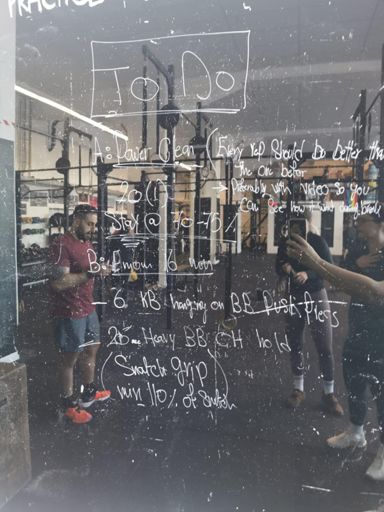 PRACTICE
To Do
A: Power Clean (Every rep should be better than
the one before
20 (1)
→ Preferably with video so you
can see how it went
Start @ 70-75%
B: Emom 16
- 6 KB hanging on BB Push Press
Heavy BB OH hold
(Snatch grip
min 110% of Snatch)